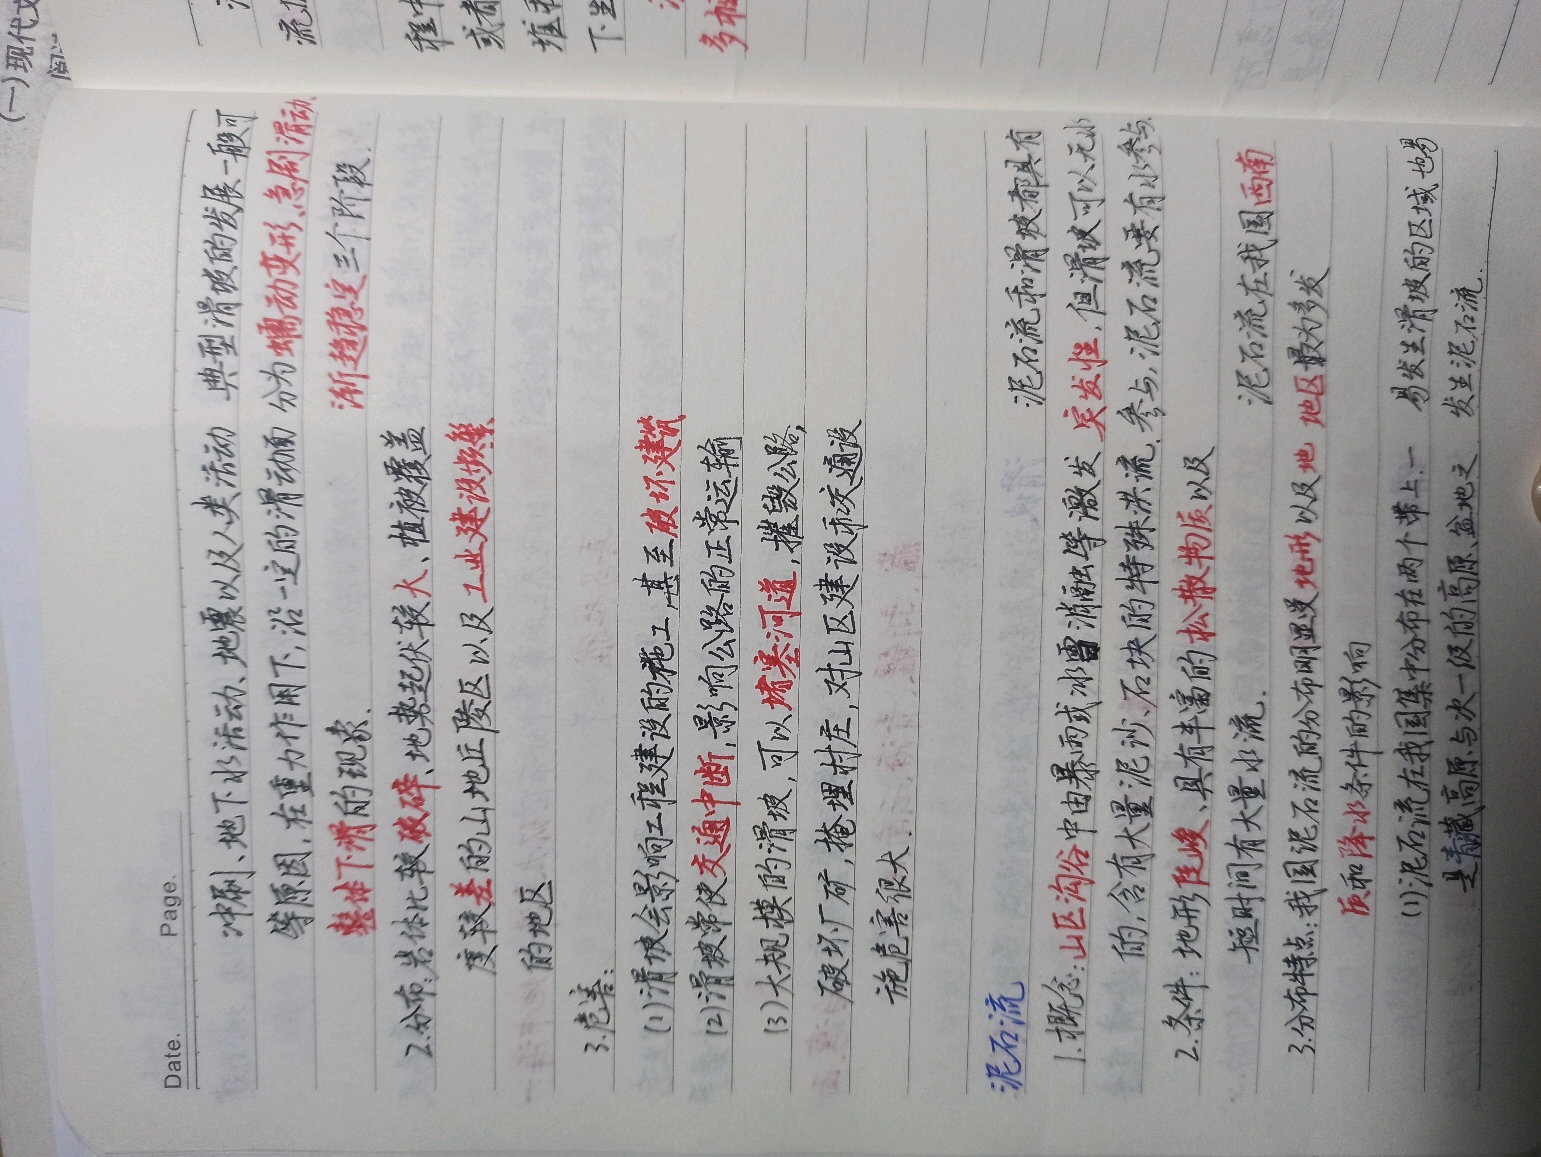 Date.
Page.
冲刷、地下水活动、地震以及人类活动 典型滑坡的发展一般可
等原因,在重力作用下,沿一定的滑动面 分为蠕动变形、急剧滑动、
整体下滑的现象. 渐趋稳定三个阶段.
2.分布:岩体比较破碎、地势起伏较大、植被覆盖
度较差的山地丘陵区以及工业建设频繁
的地区
3.危害:
(1)滑坡会影响工程建设的施工,甚至破坏建筑
(2)滑坡常使交通中断,影响公路的正常运输
(3)大规模的滑坡,可以堵塞河道,摧毁公路,
破坏厂矿,掩埋村庄,对山区建设和交通设
施危害很大.
泥石流 泥石流和滑坡都具有
1.概念:山区沟谷中由暴雨或冰雪消融等激发 突发性,但滑坡可以无水
的,含有大量泥沙、石块的特殊洪流. 参与,泥石流要有水参与.
2.条件:地形陡峻、具有丰富的松散物质以及
短时间有大量水流. 泥石流在我国西南
3.分布特点:我国泥石流的分布明显受地形以及地 地区最为多发
质和降水条件的影响
(1)泥石流在我国集中分布在两个带上.一 易发生滑坡的区域也易
是青藏高原与次一级的高原、盆地之 发生泥石流.
(一)现代文